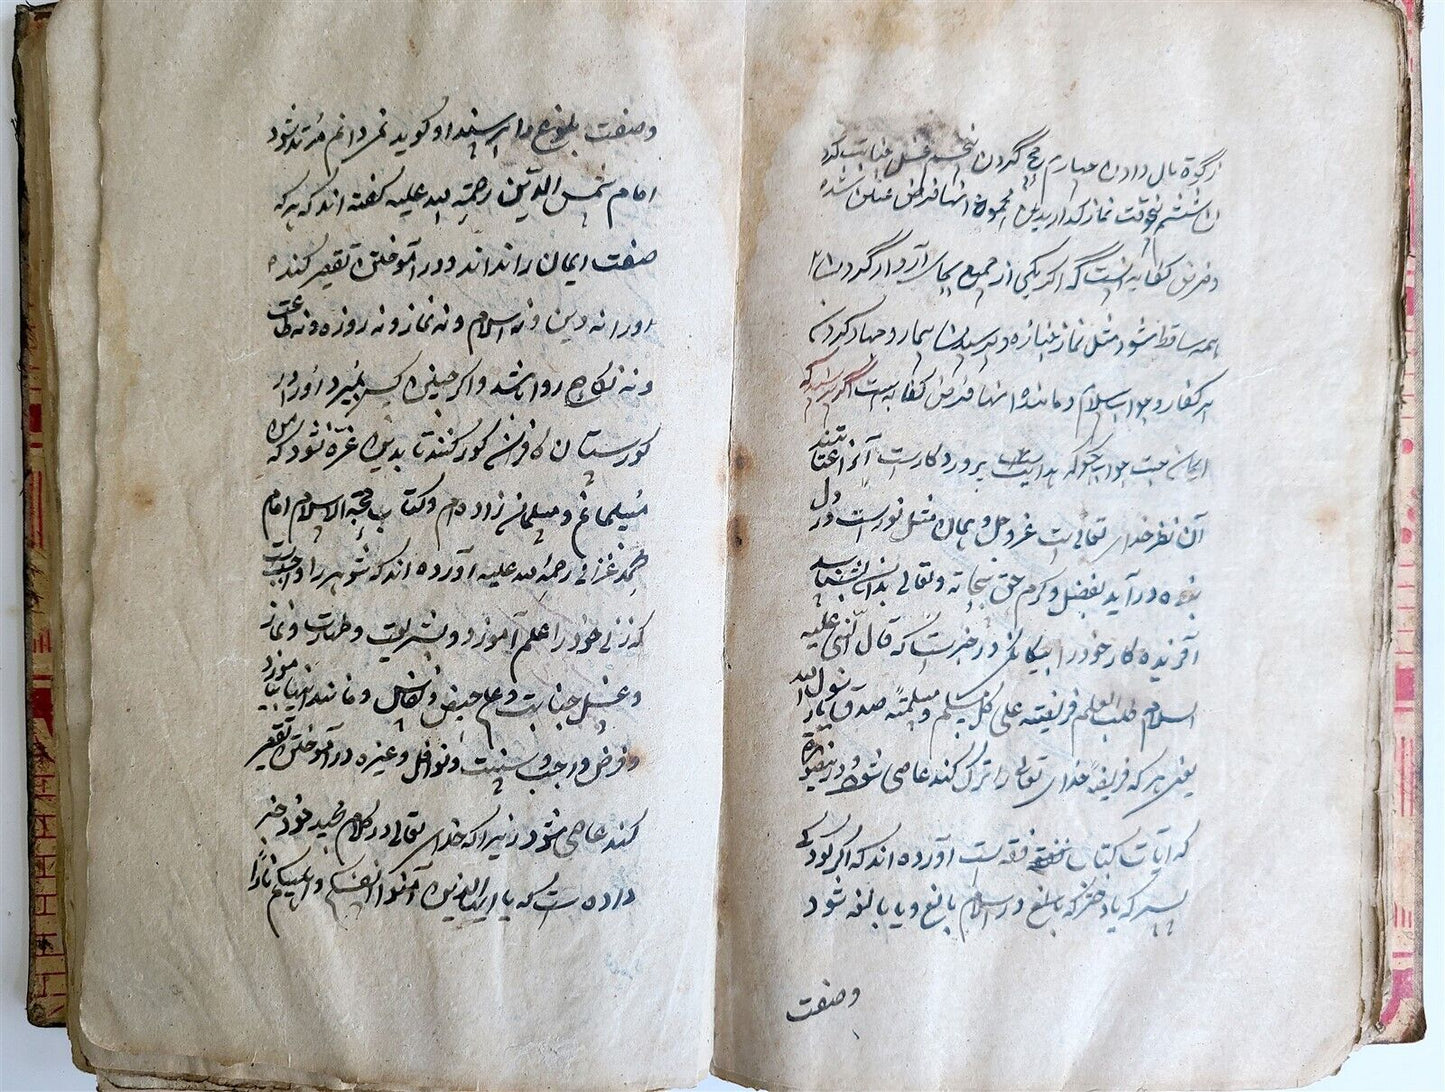 زکوة مال دادن چهارم حج کردن پنجم غسل جنابت کردن
ششم پنج وقت نماز گذاریدن مجموع اینها فرض عین شده
و فرض کفایه انست که اگر یکی از جمیع بجای آرد از گردن
همه ساقط شود مثل نماز جنازه و پرسیدن بیمار و جهاد کردن
بر کفار و جواب سلام و مانند اینها فرض کفایه است اگر پرسند که
ایمان چیست جواب بگو که هدایت پروردگارست
آن نظر خدای تعالی است عز و جل و ایمان مثل نورست در دل
بنده در آید بفضل و کرم حق سبحانه و تعالی بدان بشناسد
آفریننده کار خود را بیگانگی در خبرست که قال النبی علیه
السلام طلب العلم فریضة علی کل مسلم و مسلمة صدق یا رسول الله
یعنی هر که فریضهٔ خدای تعالی را ترک کند عاصی شود و در
که آیات کتاب فقه است آورده اند که اگر کودکی
پسر که یا دختر که بالغ در اسلام بالغ و یا بالغه شود
وصفت
وصفت بلوغ را پرسند او گوید نمی دانم مرتد شود
امام شمس الدین رحمة الله علیه گفته اند که هر که
صفت ایمان را نداند و در آموختن تقصیر کند
اورا نه دین و نه اسلام و نه نماز و نه روزه و نه طاعت
و نه نکاح روا باشد و اگر چنین کس بمیرد او را در
گورستان کافران گور کنند تا بدین غره نشود که من
مسلمانم و مسلمان زاده ام و کتاب حجة الاسلام امام
محمد غزالی رحمة الله علیه آورده اند که شوهر را واجبست
که زن خود را علم آموزد و شریعت و طهارت و نماز
و غسل جنابت و علم حیض و نفاس و مانند اینها بیاموزد
و فرض و واجب و سنت و نوافل و غیره در آموختن تقصیر
کند عاصی شود زیرا که خدای تعالی در کلام مجید خود خبر
داده است که یا ایها الذین آمنوا قوا انفسکم و اهلیکم نارا